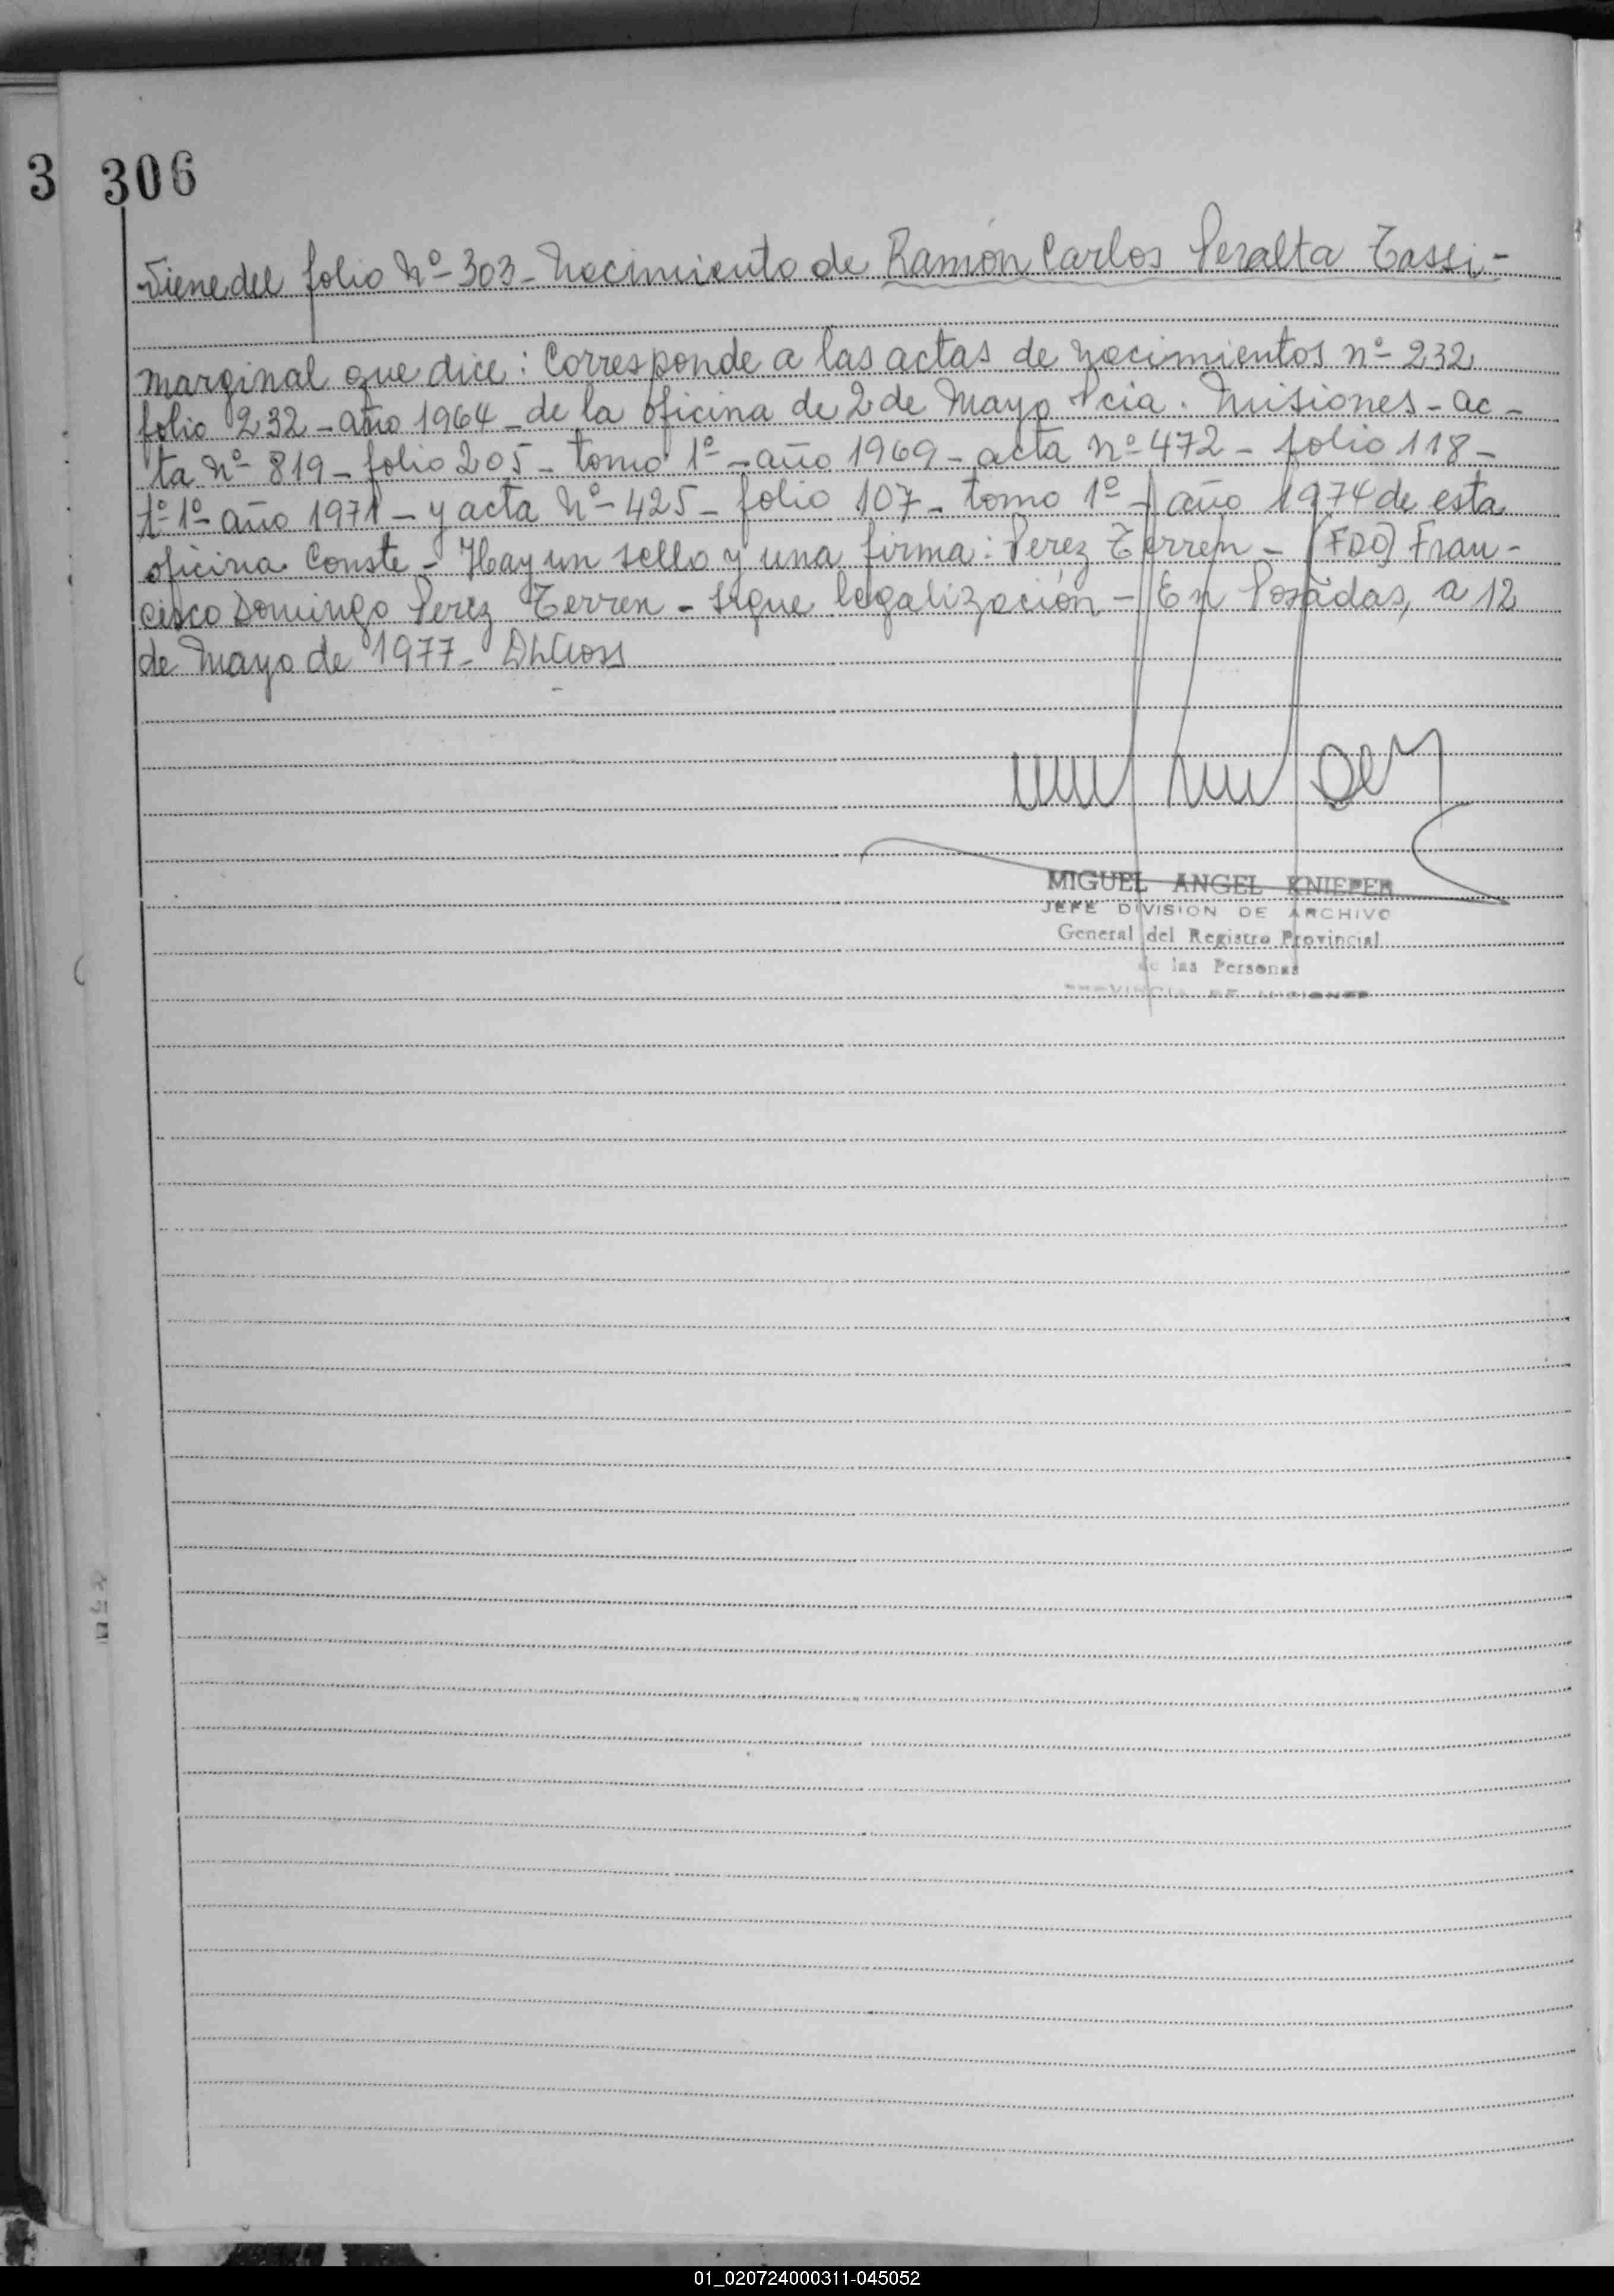 3 306
Viene del folio Nº 303 - Nacimiento de Ramón Carlos Peralta Tassi -
marginal que dice: Corresponde a las actas de nacimientos nº 232
folio 232 - año 1964 - de la oficina de 2 de Mayo Pcia. Misiones - ac -
ta Nº 819 - folio 205 - tomo 1º - año 1969 - acta nº 472 - folio 118 -
tº 1º - año 1971 - y acta Nº 425 - folio 107 - tomo 1º - año 1974 de esta
oficina Conste - Hay un sello y una firma: Perez Terren - (FDO) Fran -
cisco Domingo Perez Terren - Sigue legalización - En Posadas, a 12
de Mayo de 1977 -
MIGUEL ANGEL KNIEPER
JEFE DIVISION DE ARCHIVO
General del Registro Provincial
de las Personas
PROVINCIA DE MISIONES
01_020724000311-045052